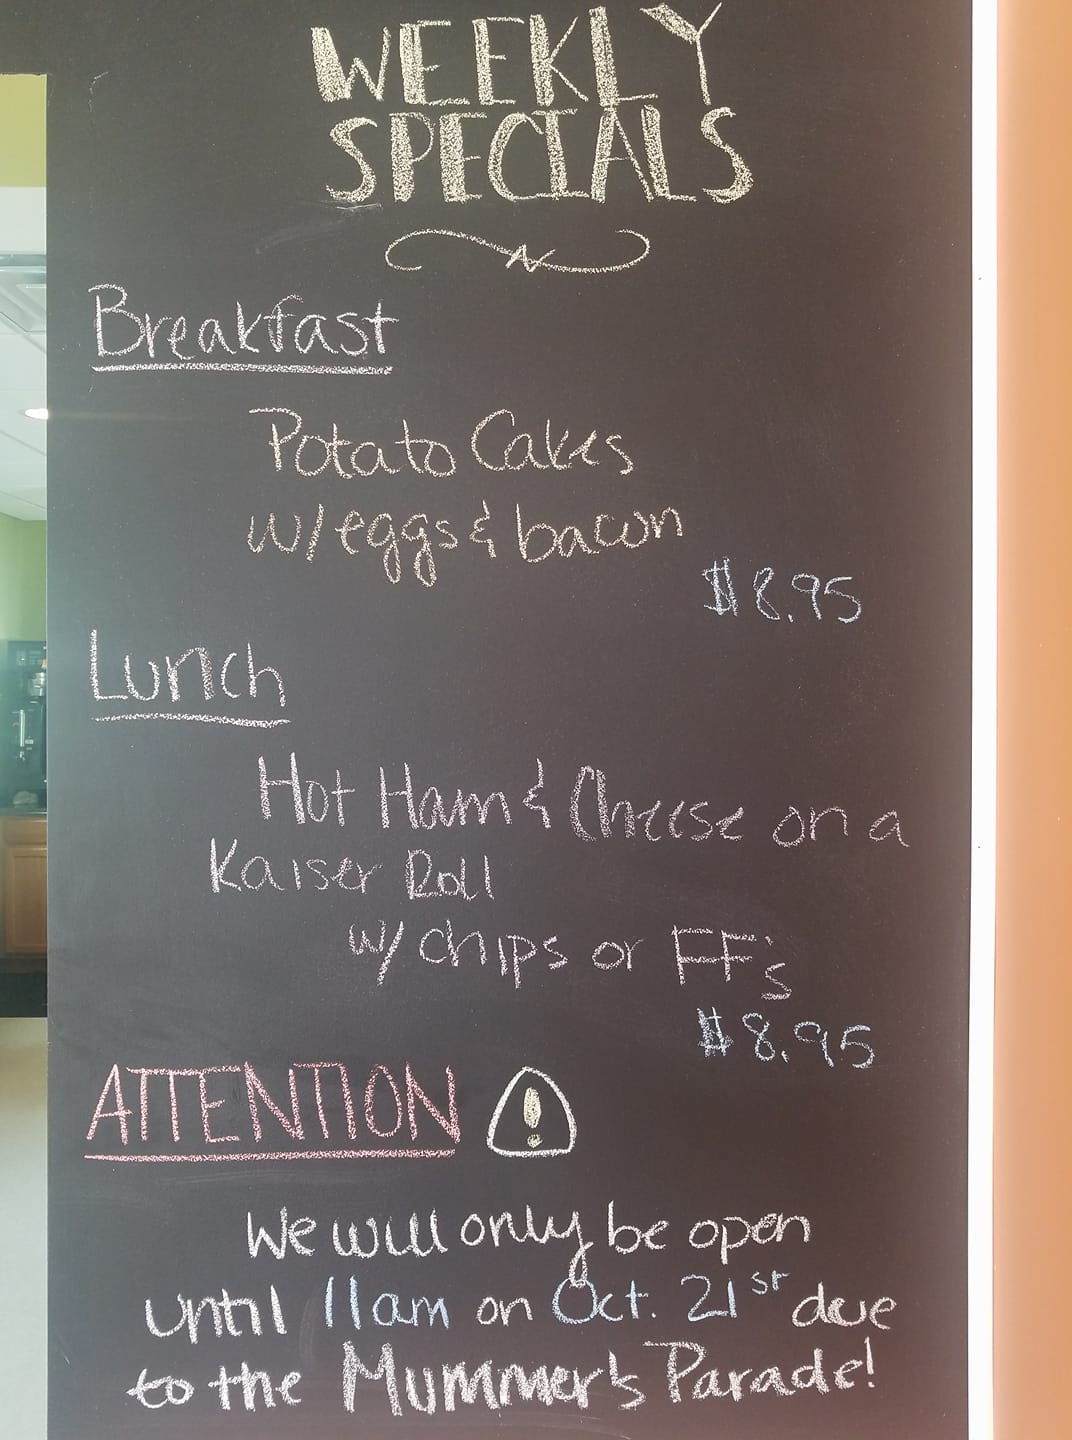 WEEKLY
SPECIALS
Breakfast
Potato Cakes
w/eggs & bacon
$8.95
Lunch
Hot Ham & Cheese on a
Kaiser Roll
w/ chips or FF's
$8.95
ATTENTION !
We will only be open
until 11am on Oct. 21st due
to the Mummer's Parade!